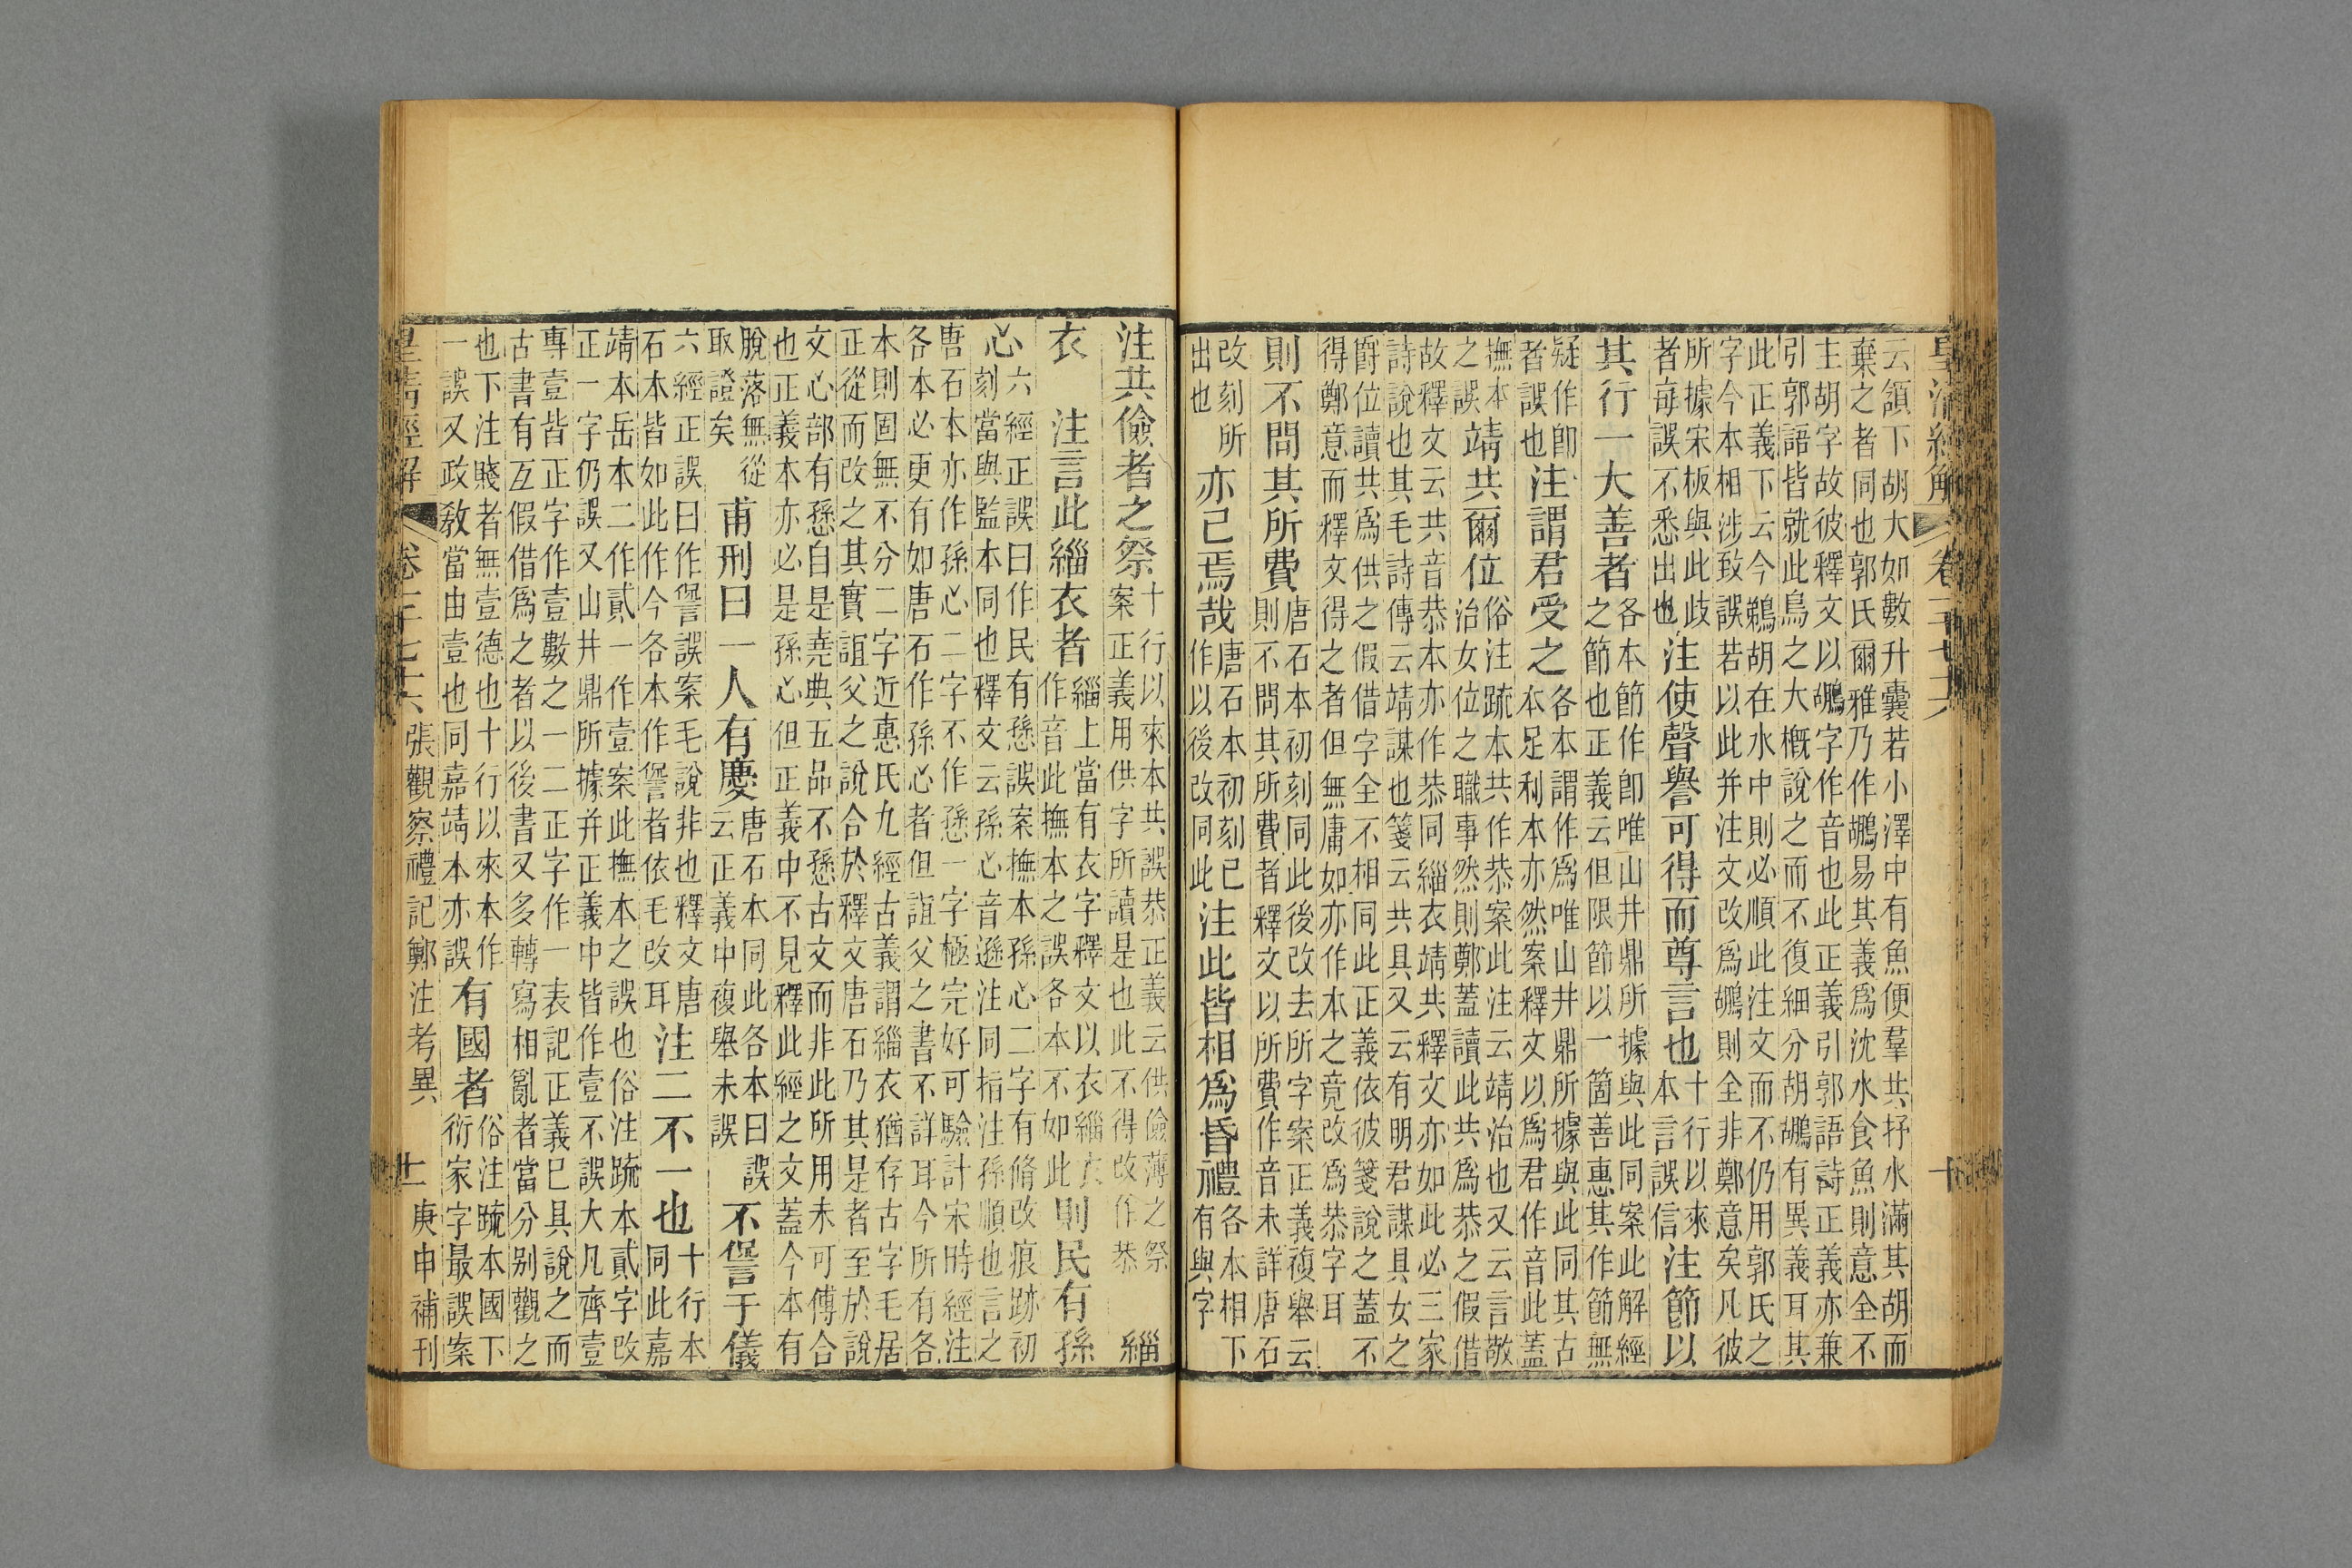 皇清經解 卷一千七十六 十
云頷下胡大如數升囊若小澤中有魚便羣共抒水滿其胡而
棄之者同也郭氏爾雅乃作鶘易其義爲沈水食魚則意全不
主胡字故彼釋文以鶘字作音也此正義引郭語詩正義亦兼
引郭語皆就此鳥之大槪說之而不復細分胡鶘有異義耳其
此正義下云今鵜胡在水中則必順此注文而不仍用郭氏之
字今本相涉致誤若以此并注文改爲鶘則全非鄭意矣凡彼
所據宋板與此歧
者每誤不悉出也
注使聲譽可得而尊言也
十行以來
本言誤信
注節以
其行一大善者
各本節作卽唯山井鼎所據與此同案此解經
之節也正義云但限節以一箇善惠其作節無
疑作卽
者誤也
注謂君受之
各本謂作爲唯山井鼎所據與此同其古
本足利本亦然案釋文以爲君作音此蓋
撫本
之誤
靖共爾位
俗注疏本共作恭案此注云靖治也又云言敬
治女位之職事然則鄭蓋讀此共爲恭之假借
故釋文云共音恭本亦作恭同緇衣靖共釋文亦如此必三家
詩說也其毛詩傳云靖謀也箋云共具又云有明君謀具女之
爵位讀共爲供之假借字全不相同此正義依彼箋說之蓋不
得鄭意而釋文得之者但無庸如亦作本之竟改爲恭字耳
則不問其所費
唐石本初刻同此後改去所字案正義複舉云
則不問其所費者釋文以所費作音未詳唐石
改刻所
出也
亦已焉哉
唐石本初刻已
作以後改同此
注此皆相爲昏禮
各本相下
有與字
注共儉者之祭
十行以來本共誤恭正義云供儉薄之祭
案正義用供字所讀是也此不得改作恭
緇
衣
注言此緇衣者
緇上當有衣字釋文以衣緇衣
作音此撫本之誤各本不如此
則民有孫
心
六經正誤曰作民有愻誤案撫本孫心二字有脩改痕跡初
刻當與監本同也釋文云孫心音遜注同指注孫順也言之
唐石本亦作孫心二字不作愻一字極完好可驗計宋時經注
各本必更有如唐石作孫心者但誼父之書不詳耳今所有各
本則固無不分二字近惠氏九經古義謂緇衣猶存古字毛居
正從而改之其實誼父之說合於釋文唐石乃其是者至於說
文心部有愻自是堯典五品不愻古文而非此所用未可傅合
也正義本亦必是孫心但正義中不見釋此經之文蓋今本有
脫落無從
取證矣
甫刑曰一人有慶
唐石本同此各本曰誤
云正義中複舉未誤
不諐于儀
六經正誤曰作諐誤案毛說非也釋文唐
石本皆如此作今各本作諐者依毛改耳
注二不一也
十行本
同此嘉
靖本岳本二作貳一作壹案此撫本之誤也俗注疏本貳字改
正一字仍誤又山井鼎所據并正義中皆作壹不誤大凡齊壹
專壹皆正字作壹數之一二正字作一表記正義巳具說之而
古書有互假借爲之者以後書又多轉寫相亂者當分别觀之
也下注賤者無壹德也十行以來本作
一誤又政敎當由壹也同嘉靖本亦誤
有國者
俗注疏本國下
衍家字最誤案
皇清經解 卷一千七十六 張觀察禮記鄭注考異 十一 庚申補刊